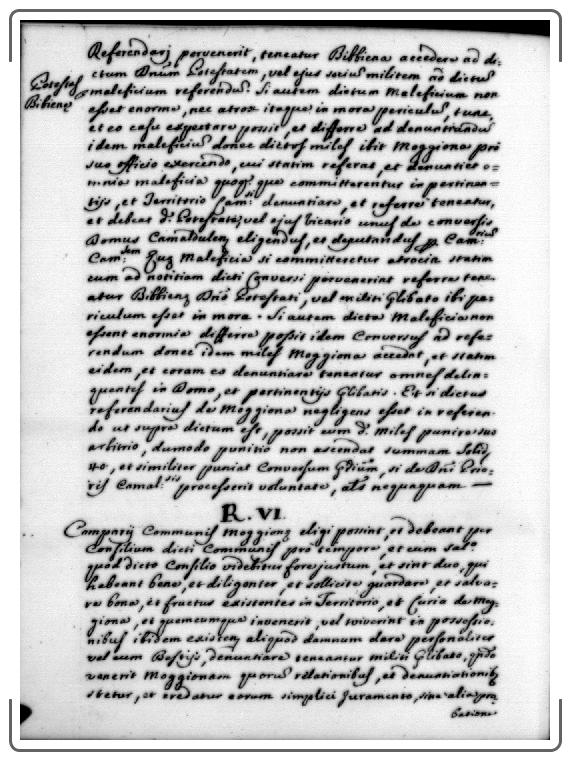 Referendarj pervenerit, teneatur Bibbiena accedere ad di-
ctum Dnum Potestatem, vel ejus socium militem, nõ dictum
Potestas
Bibienę
maleficium referendum. Si autem dictum Maleficium non
esset enorme, nec atrox itaque in mora periculum, tunc,
et eo casu expectare possit, et differre ad denuntiandum
idem maleficium donec dictus miles ibit Moggiona pro
suo officio exercendo, cui statim referat, et denuntiet o-
mnia maleficia quoq; que committerentur in pertinen-
tijs, et Territorio Cam: denuntiare, et referre teneatur,
et debeat d. Potestati, vel ejus Vicario unus de conversis
Domus Camaldulen; eligendus, et deputandus
Cam: Quę Maleficia si committeretur atrocia statim
cum ad notitiam dicti Conversi pervenerint referre tene-
atur Bibbienę Dnõ Potestati, vel militi Glibato ibi pe-
riculum esset in mora. Si autem dicta Maleficia non
essent enormia differre possit idem Conversus ad refe-
rendum donec idem miles Moggiona accedat, et statim
eidem, et coram eo denuntiare teneatur omnes delin-
quentes in Domo, et pertinentijs Glibatis. Et si dictus
referendarius de Moggiona negligens esset in referen-
do ut supra dictum est, possit eum d. Miles punire suo
arbitrio, dumodo punitio non ascendat summam Solid.
40, et similiter puniat Conversum, si de Dni Prio-
ris Camal: processerit voluntate, als nequaquam —
R. VI.
Comparij Communis Moggionę eligi possint, et debeant per
Consilium dicti Communis pro tempore, et cum sal.
quod dicto Consilio videbitur fore justum, et sint duo, qui
habeant bene, et diligenter, et sollicite guardare, et salva-
re bona, et fructus existentes in Territorio, et Curia de Mog-
giona, et quemcumque invenerit, vel viderint in possessio-
nibus ibidem existen; aliquod damnum dare personaliter
vel cum Bestijs, denuntiare teneantur militi Glibato, qndo
venerit Moggionam quorum relationibus, et denuntiationib;
stetur, et credatur eorum simplici Juramento, sine alia pro
batione